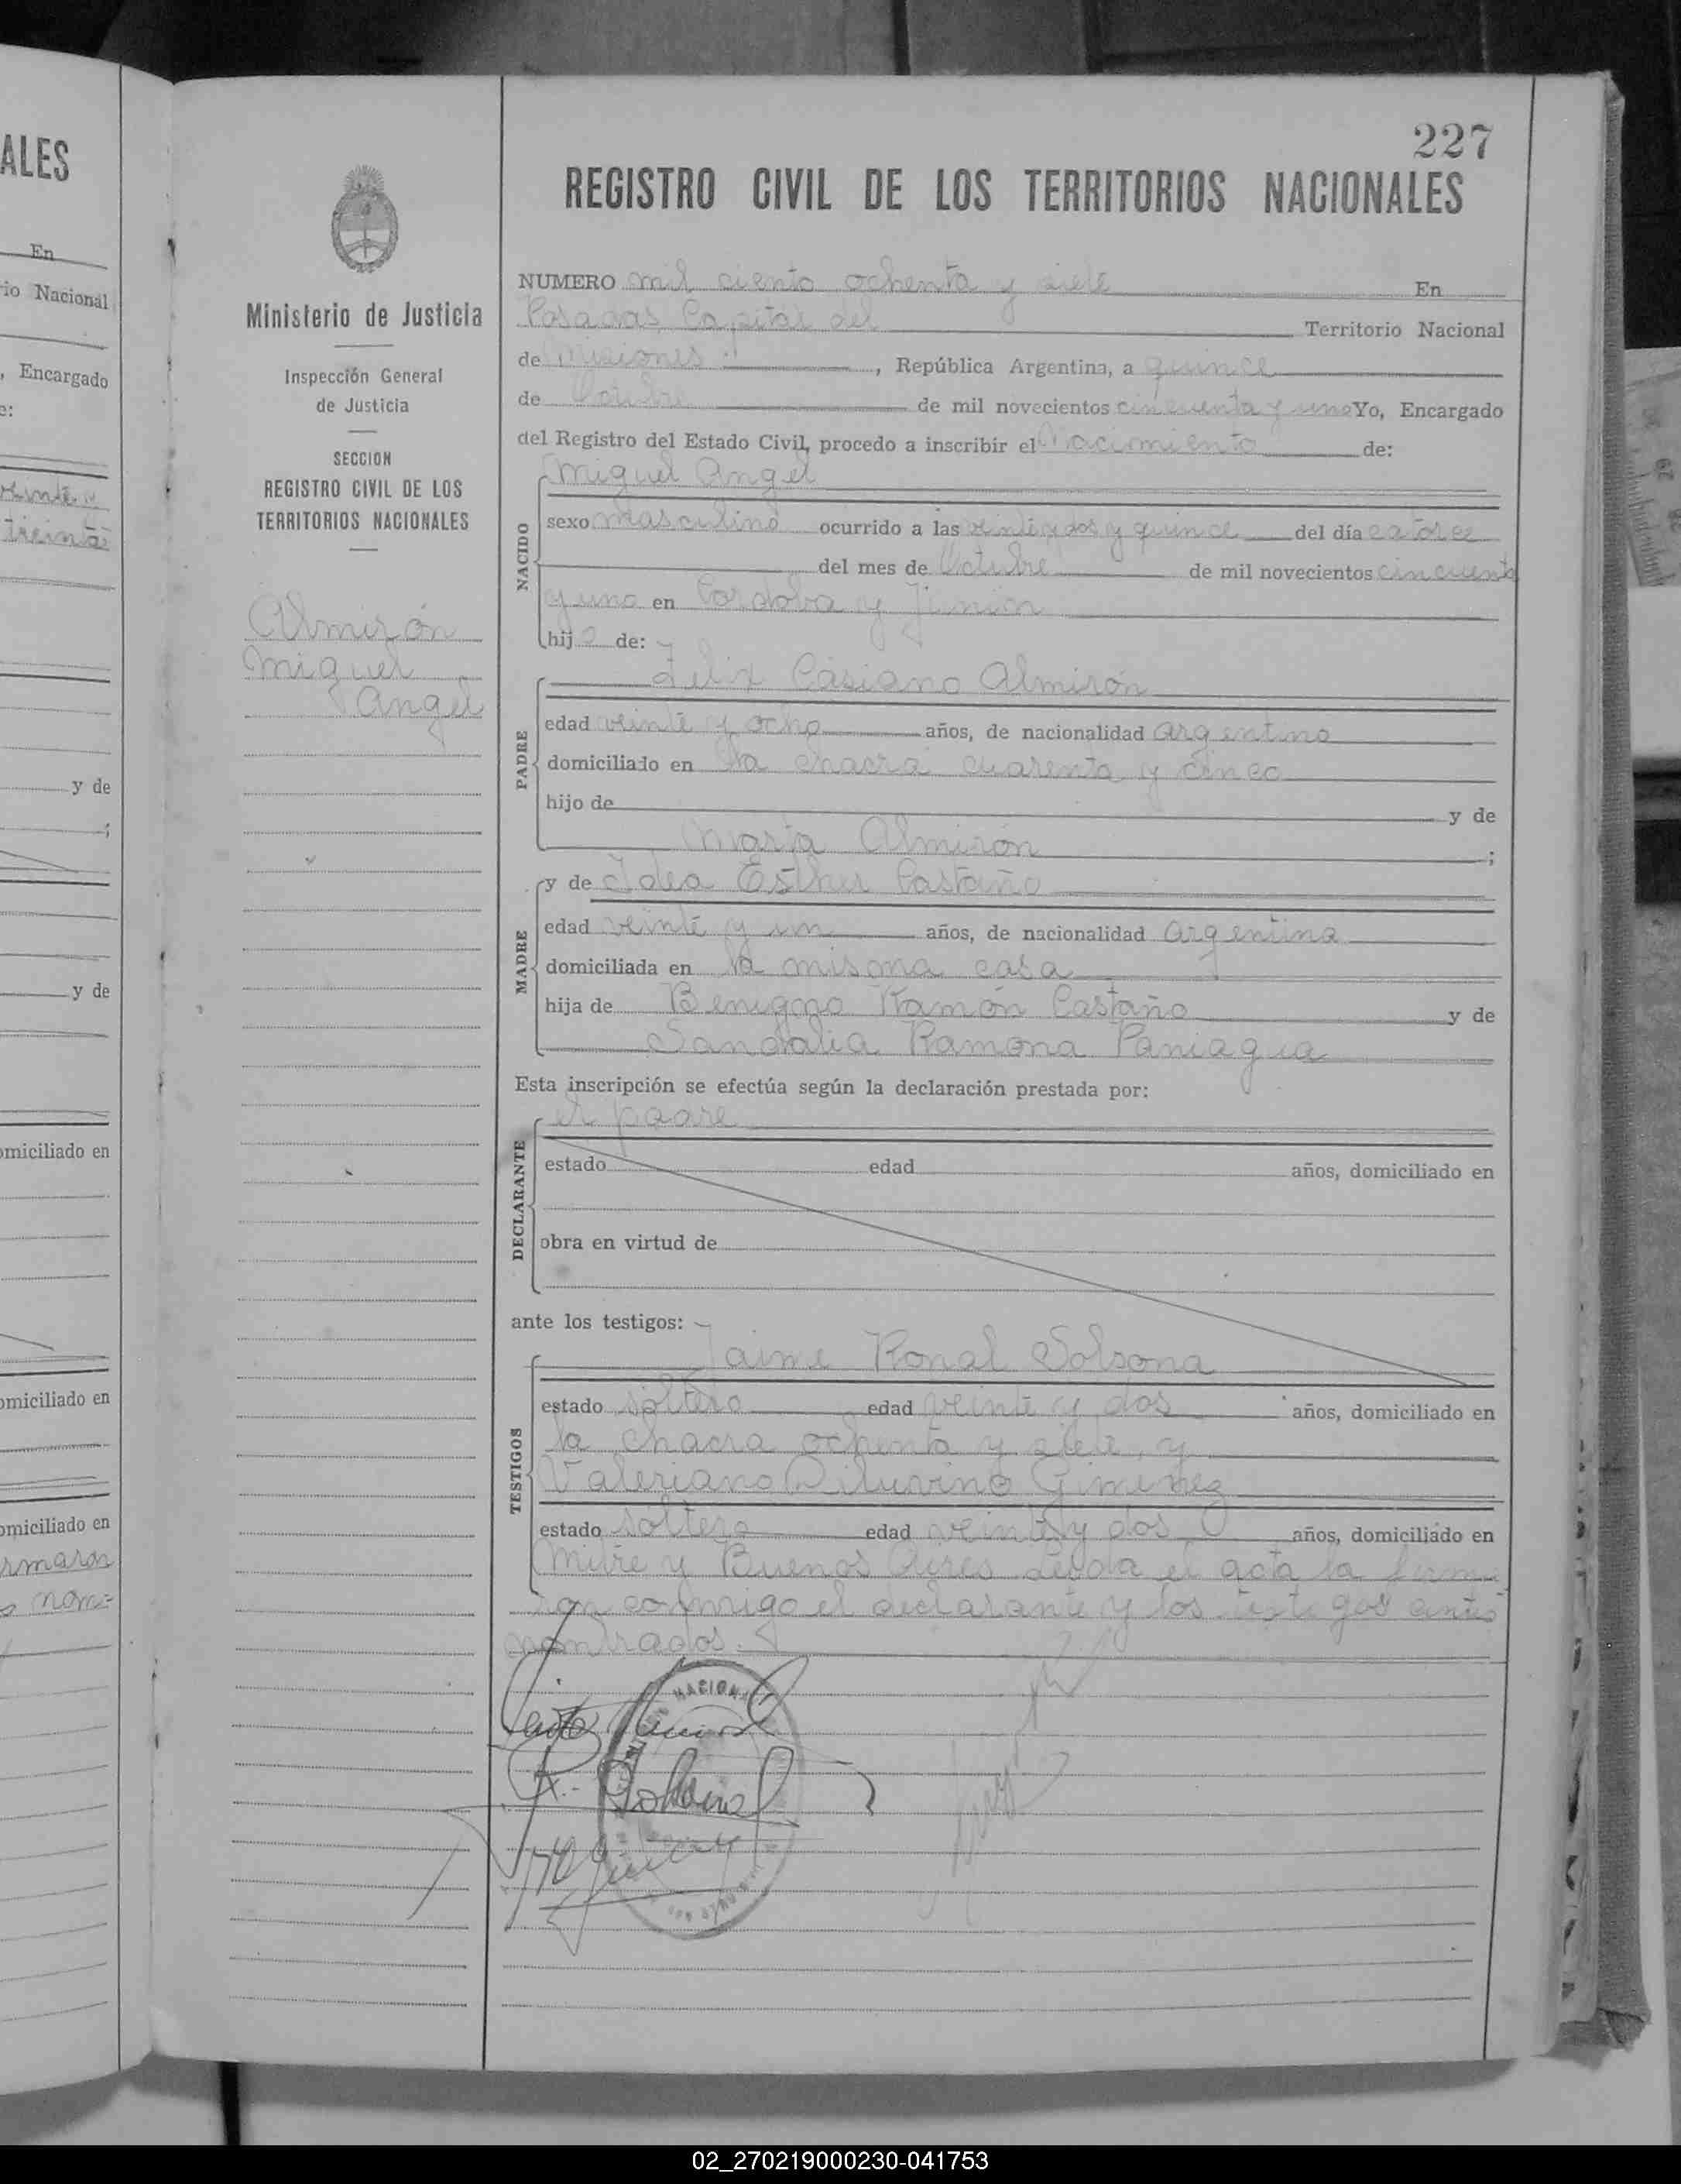 ALES
En
io Nacional
, Encargado
treinta
y de
y de
omiciliado en
omiciliado en
omiciliado en
Ministerio de Justicia
Inspección General
de Justicia
SECCION
REGISTRO CIVIL DE LOS
TERRITORIOS NACIONALES
Almirón
Miguel
Angel
227
REGISTRO CIVIL DE LOS TERRITORIOS NACIONALES
NUMERO mil ciento ochenta y siete En
Posadas Capital del Territorio Nacional
de Misiones , República Argentina, a quince
de Octubre de mil novecientos cincuenta y uno Yo, Encargado
del Registro del Estado Civil, procedo a inscribir el Nacimiento de:
Miguel Angel
NACIDO
sexo masculino ocurrido a las veinte y dos y quince del día catorce
del mes de Octubre de mil novecientos cincuenta
y uno en Cordoba y Junior
hijo de:
Felix Casiano Almirón
PADRE
edad veinte y ocho años, de nacionalidad argentino
domiciliado en la chacra cuarenta y cinco
hijo de y de
Marta Almirón ;
MADRE
y de Idea Esther Castaño
edad veinte y un años, de nacionalidad argentina
domiciliada en la misma casa
hija de Benigno Ramón Castaño y de
Sandalia Ramona Paniagua
Esta inscripción se efectúa según la declaración prestada por:
el padre
DECLARANTE
estado edad años, domiciliado en
obra en virtud de
ante los testigos:
Jaime Ronal Solsona
TESTIGOS
estado soltero edad veinte y dos años, domiciliado en
la chacra ochenta y siete, y
Valeriano Giminez
estado soltero edad veinte y dos años, domiciliado en
Mitre y Buenos Aires Leida el acta la firma
ron conmigo el declarante y los testigos antes
nombrados.
02_270219000230-041753